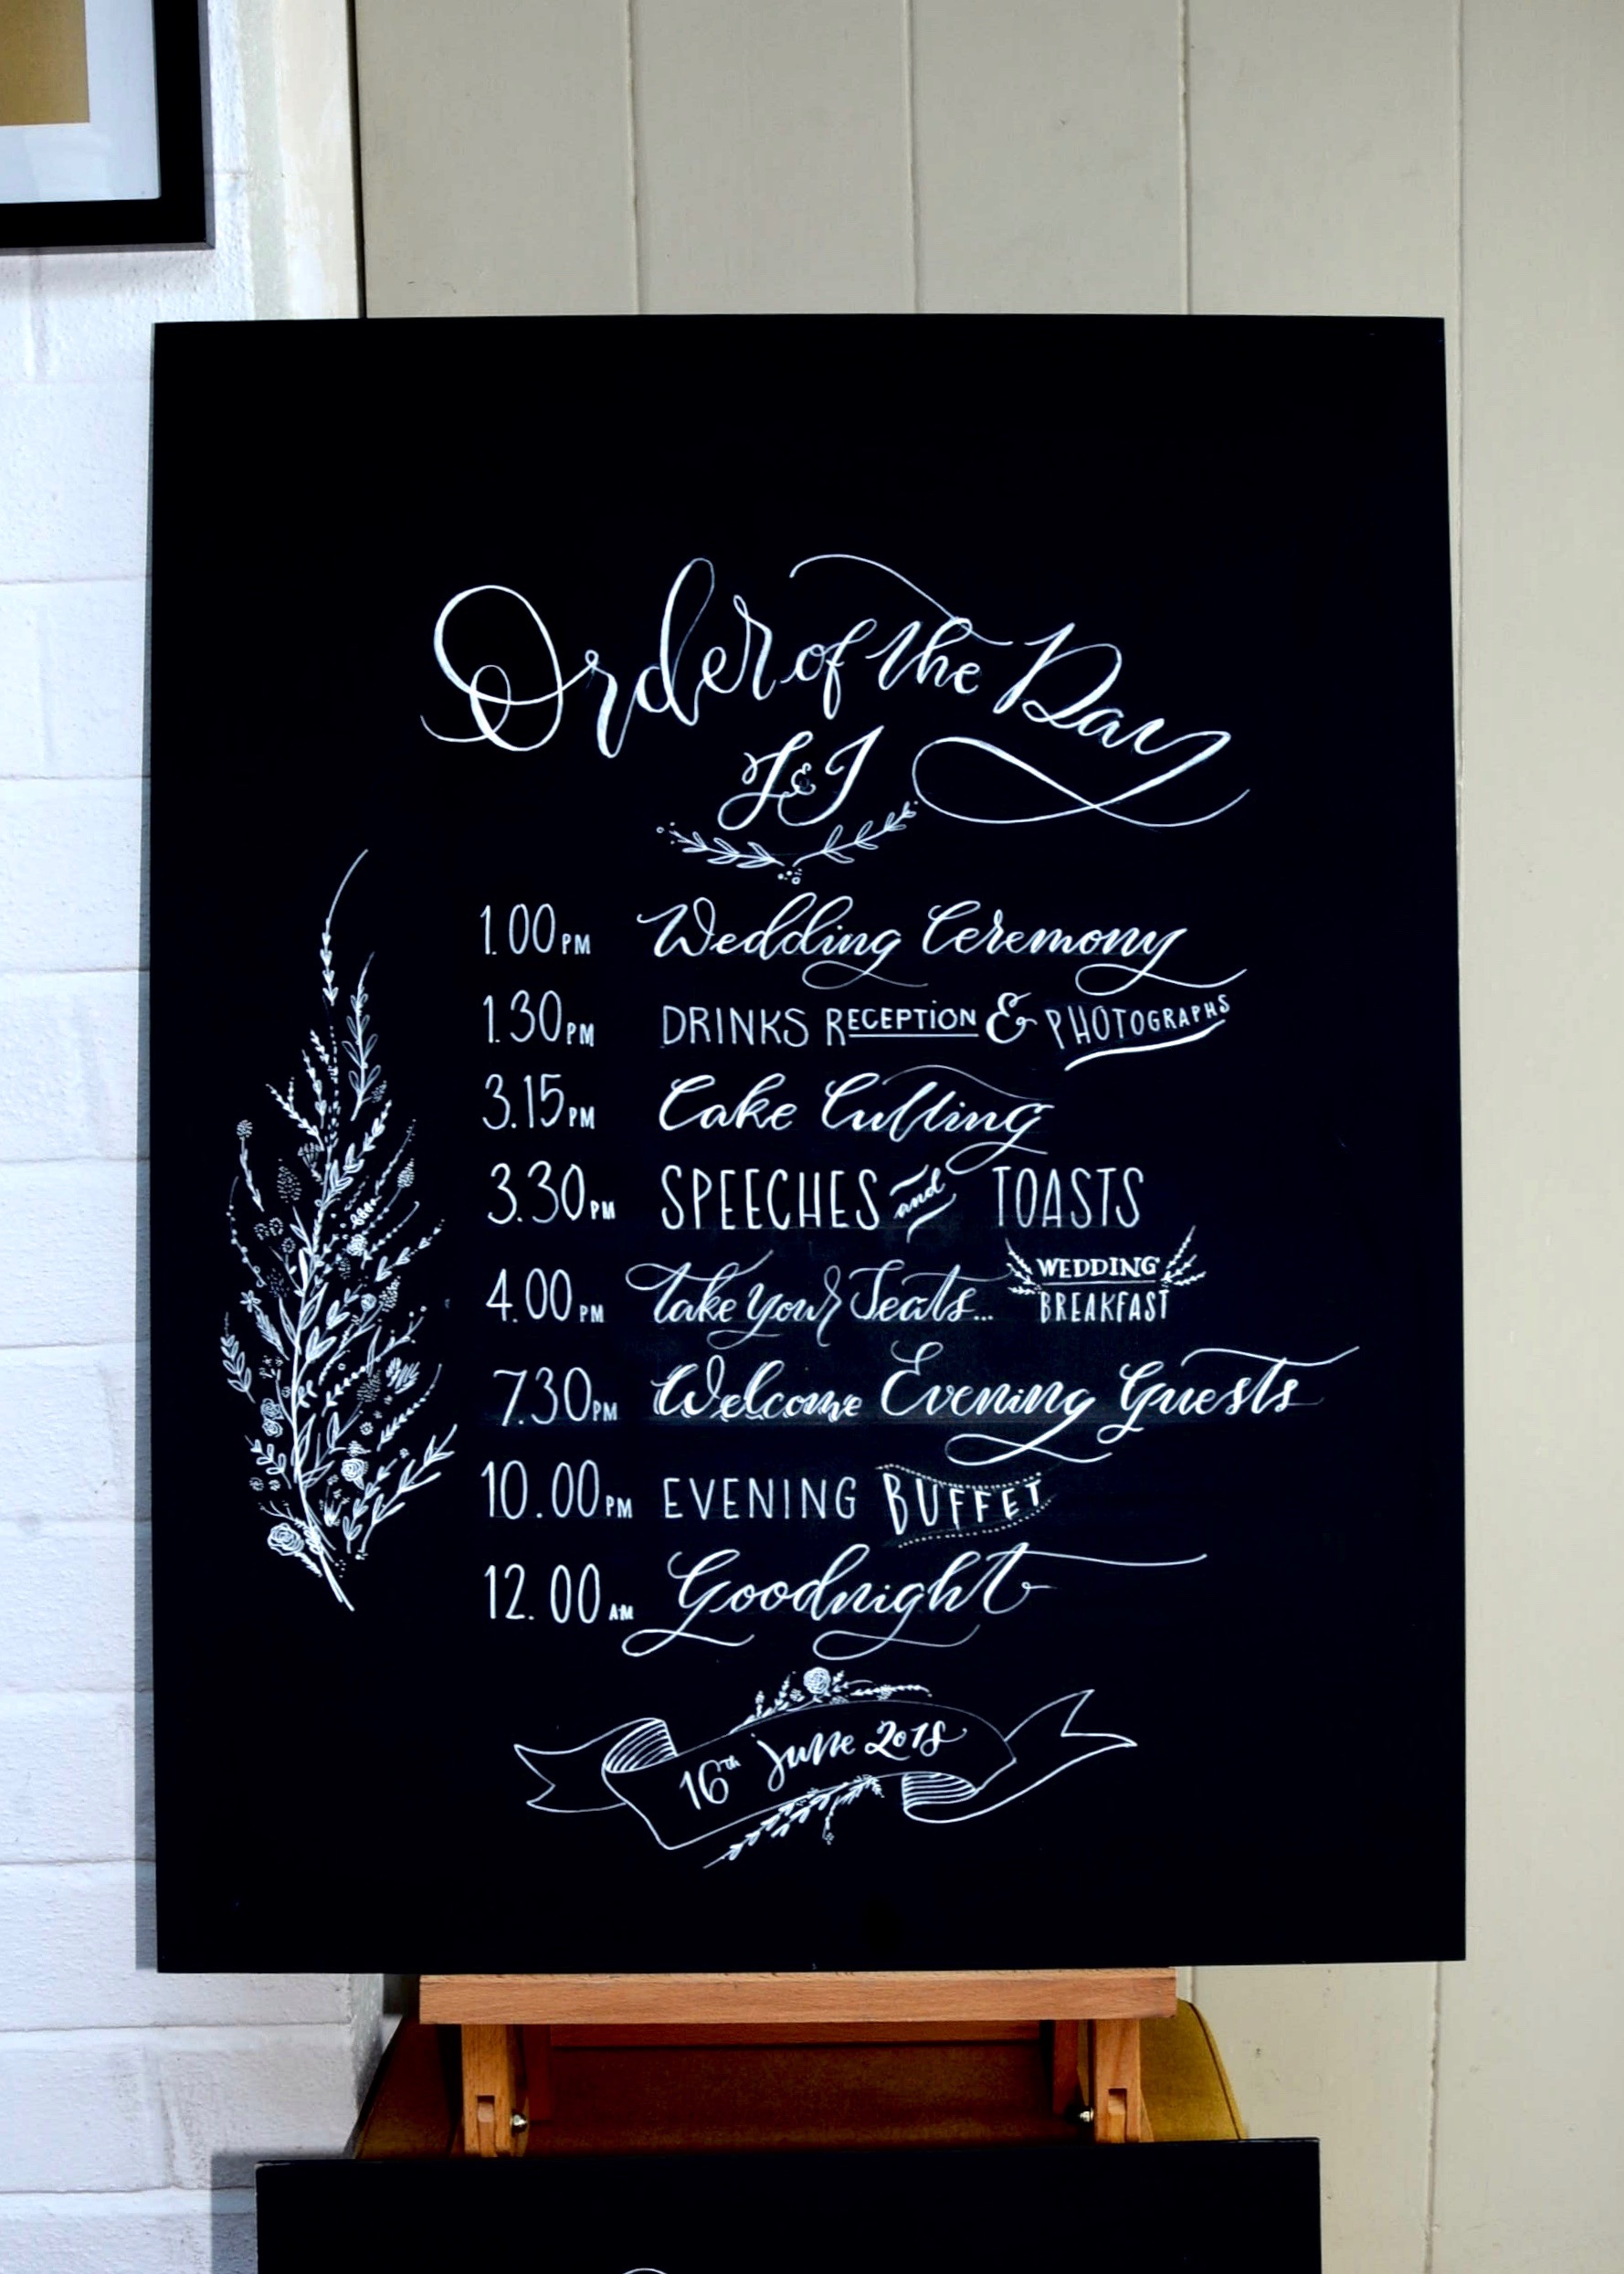 Order of the Day
J&J
1.00 PM Wedding Ceremony
1.30 PM DRINKS RECEPTION & PHOTOGRAPHS
3.15 PM Cake Cutting
3.30 PM SPEECHES and TOASTS
4.00 PM Take your Seats... WEDDING BREAKFAST
7.30 PM Welcome Evening Guests
10.00 PM EVENING BUFFET
12.00 AM Goodnight
16th June 2018